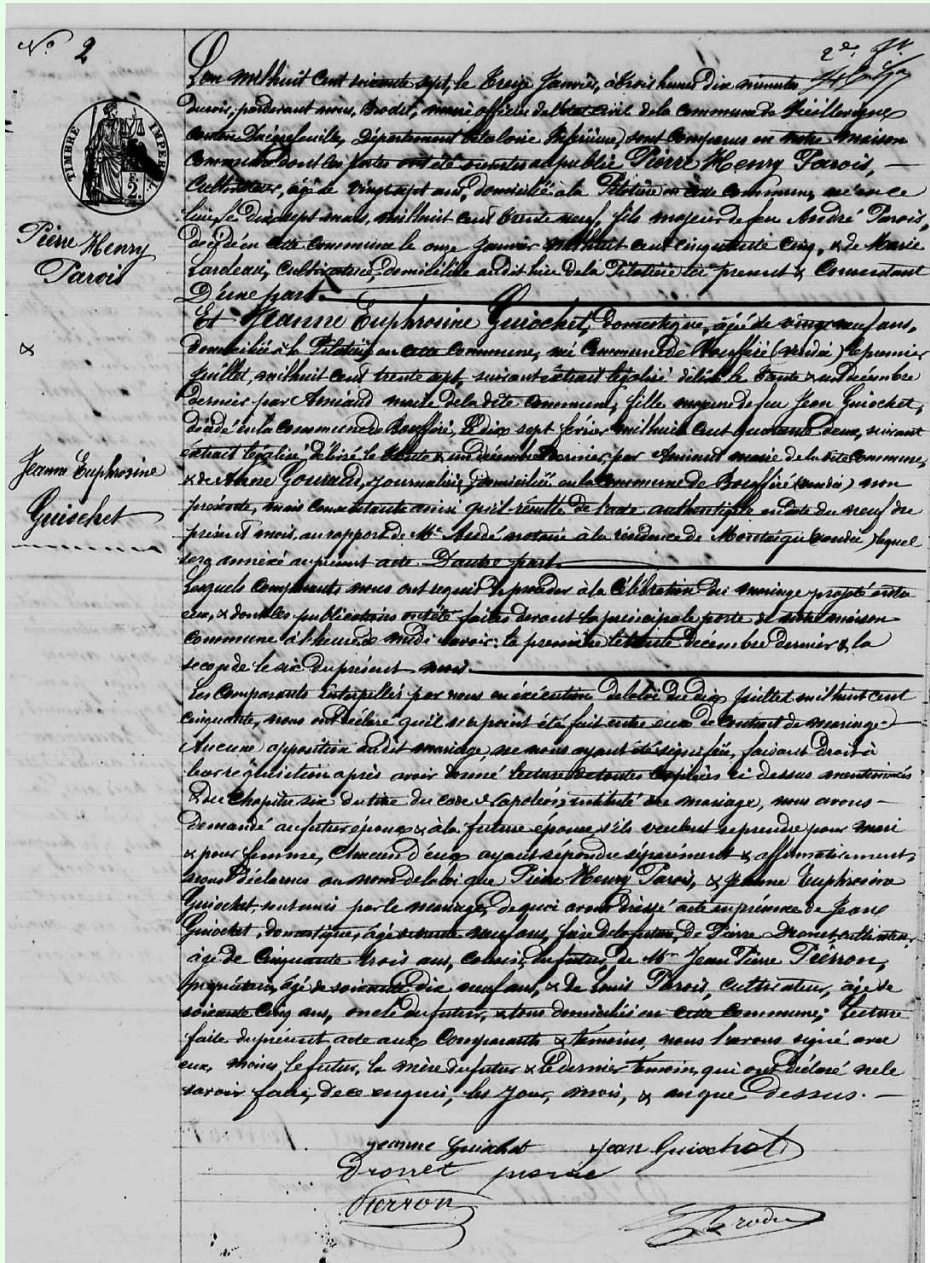 N.º 2
L'an mil huit cent soixante sept, le treize Janvier, à trois heures dix minutes
du soir, pardevant nous, Brodu, maire officier de l'état civil de la commune de Vieillevigne
canton d'aigrefeuille, Département de la loire Inférieure) sont comparus en notre maison
commune dont les portes ont été ouvertes au public Pierre Henry Parois, —
TIMBRE IMPERIAL
Cultivateur, âgé de vingt sept ans, domicilié à la Pilotière en cette commune, né en ce
lieu le dix sept mars, mil huit cent trente neuf, fils majeur de feu André Parois,
Pierre Henry
Parois
décédé en cette commune le onze Janvier mil huit cent cinquante cinq, & de Marie
Lardeau, cultivatrice, domiciliée au dit lieu de la Pilotière ici présent & consentant
D'une part. —
&
Et Jeanne Euphrosine Guiochet, Domestique, âgée de vingt neuf ans,
domiciliée à la Pilotière en cette commune, née commune de Boufféré (vendée) le premier
Juillet, mil huit cent trente sept, suivant extrait légalisé délivré le trente & un décembre
dernier par Amiaud maire de la dite commune, fille majeure de feu Jean Guiochet,
décédé en la commune de Boufféré, le dix sept février mil huit cent quarante deux, suivant
extrait légalisé, délivré le trente & un décembre dernier, par Amiaud maire de la dite commune,
Jeanne Euphrosine
Guiochet
& de Anne Gouraud, Journalière, domiciliée en la commune de Boufféré (vendée) non
présente, mais consentante ainsi qu'il résulte de l'acte authentique en date du neuf du
présent mois, au rapport de Mᵉ notaire à la résidence de Montaigu (vendée) lequel
sera annexé au présent acte. D'autre part. —
Lesquels comparants nous ont requis de procéder à la célébration du mariage projeté entre
eux, & dont les publications ont été faites devant la principale porte de notre maison
commune à l'heure de midi savoir: la première le trente décembre dernier & la
seconde le six du présent mois. —
Les comparants interpellés par nous en exécution de la loi du dix Juillet mil huit cent
cinquante, nous ont déclaré qu'il n'a point été fait entre eux de contrat de mariage —
Aucune opposition au dit mariage, ne nous ayant été signifiée, faisant droit à
leur réquisition après avoir donné lecture de toutes les pièces ci dessus mentionnées
& du chapitre six du titre du code Napoléon, intitulé du mariage, nous avons —
demandé au futur époux & à la future épouse s'ils veulent se prendre pour mari
& pour femme, chacun d'eux ayant répondu séparément & affirmativement,
nous déclarons au nom de la loi que Pierre Henry Parois, & Jeanne Euphrosine
Guiochet, sont unis par le mariage, de quoi avons dressé acte en présence de Jean
Guiochet, domestique, âgé de trente neuf ans, frère de la future, de Pierre Dronet, cultivateur,
âgé de cinquante trois ans, cousin du futur, de Mʳ Jean Pierre Pierron,
propriétaire, âgé de soixante dix neuf ans, & de Louis Parois, cultivateur, âgé de
soixante cinq ans, oncle du futur, & tous domiciliés en cette commune; Lecture
faite du présent acte aux comparants & témoins, nous l'avons signé avec
eux, moins le futur, la mère du futur & le dernier témoin, qui ont déclaré ne le
savoir faire, de ce enquis, les Jour, mois, & an que dessus. —
jeanne Guiochet Jean Guiochet
Dronet pierre
Pierron
Brodu